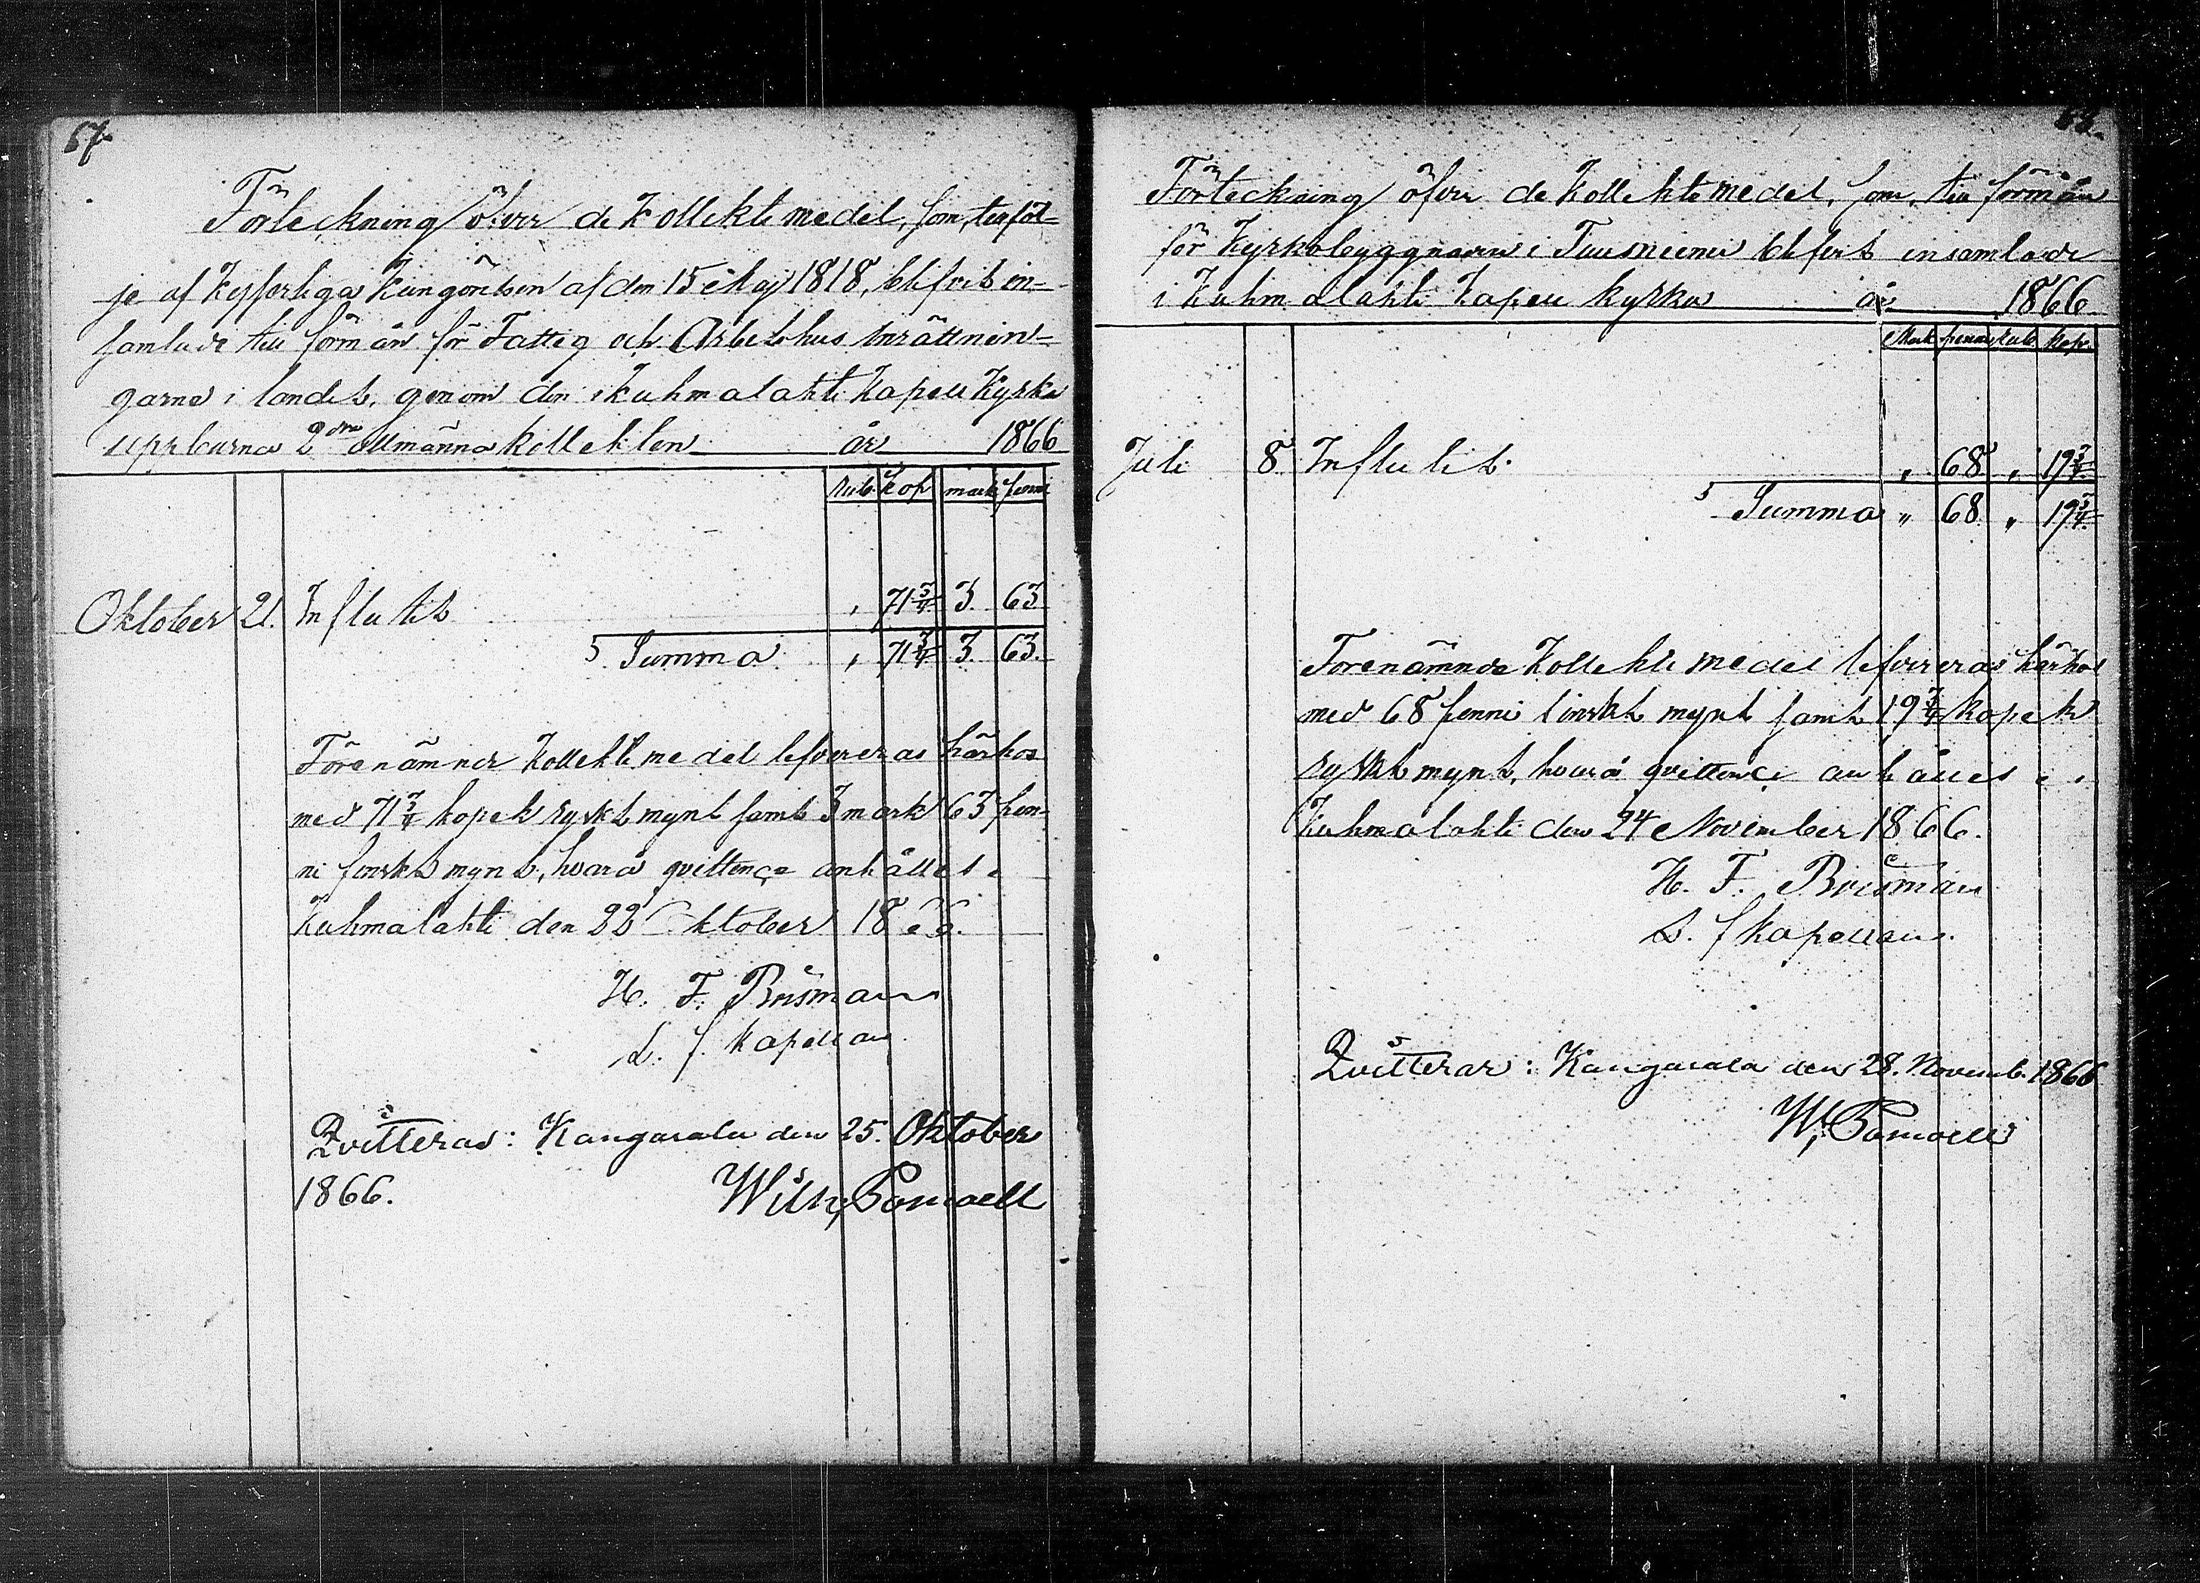 67.
Förteckning öfver de Kollektmedel, som, till föl-
je af Kejserliga Kungörelsen af den 15 Maj 1818, blifvit in-
samlade till förmån för Fattig och Arbetshus inrättnin-
garne i landet, genom den i Kuhmalahti Kapell Kyrka
uppburna 2dra allmänna kollekten år 1866
Rub. Kop mark penni
Oktober 21. Influtit " 71 3/4 3. 63.
Summa " 71 3/4 3. 63.
Förenämnde Kollektmedel lefvereras härhos
med 71 3/4 kopek ryskt mynt samt 3 mark 63 pen-
ni finskt mynt, hvarå qvittence anhålles.
Kuhmalahti den 22 Oktober 1866.
H. F. Brisman
L. f. kapellan
Qvitteras: Kangasala den 25. Oktober
1866. Wilh. Pomoell
Förteckning öfver de Kollektmedel, som, till förmån
för Kyrkobyggnaden i Tuusniemi blifvit insamlade
i Kuhmalahti Kapell kyrka år 1866.
Mark penni rub. Kop.
Juli 8. Influtit. " 68 " 19 3/4
Summa " 68 " 19 3/4
Förenämnde Kollektmedel lefvereras härhos
med 68 penni finskt mynt samt 19 3/4 kopek
ryskt mynt, hvarå qvittence anhålles.
Kuhmalahti den 24 November 1866.
H. F. Brisman
L. f kapellan.
Qvitterar: Kangasala den 28. Novemb. 1866
W. Pomoell